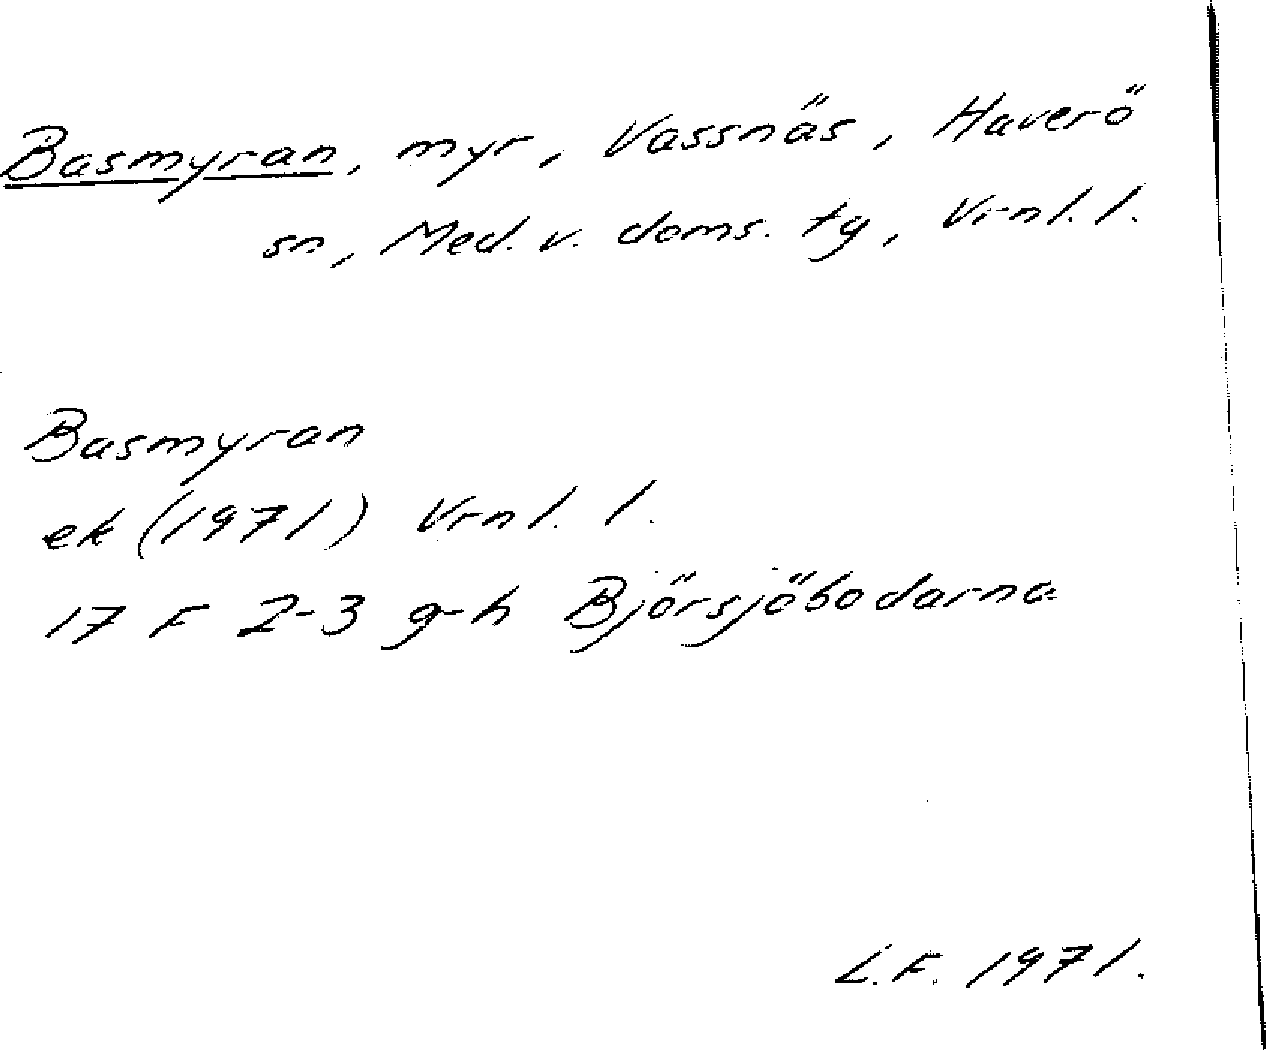 Basmyran, myr, Vassnäs, Haverö
sn, Med. v. doms. tg, Vrnl. l.
Basmyran
ek (1971) Vrnl. l.
17 F 2-3 g-h Björsjöbodarna
L.F. 1971.